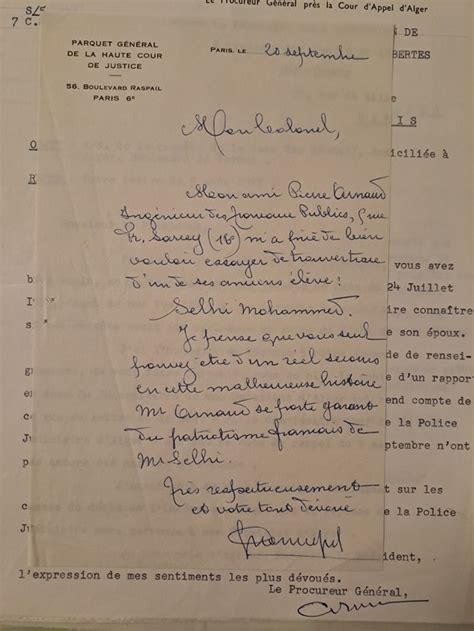 Le Procureur Général près la Cour d'Appel d'Alger
7 C.
PARQUET GÉNÉRAL
DE LA HAUTE COUR
DE JUSTICE
56, BOULEVARD RASPAIL
PARIS 6e
PARIS, LE 20 septembre
N DE
BERTES
I S
Mon Colonel,
O
iciliée à
R
Mon ami Pierre Arnaud
Ingénieur des Travaux Publics, 5 rue
Fr. Sarcey (16e) m'a prié de bien
vouloir essayer de trouver trace
vous avez
d'un de ses anciens élève !
24 Juillet
Selhi Mohammed.
ire connaître
Je pense que vous seul
e son époux.
pouvez être d'un réel secours
de de rensei-
en cette malheureuse histoire
e d'un rappor
Mr Arnaud se porte garant
end compte de
du patriotisme français de
e la Police
Mr Selhi.
ptembre n'ont
Très respectueusement
t sur les
et votre tout dévoué
e la Police
ident,
l'expression de mes sentiments les plus dévoués.
Le Procureur Général,